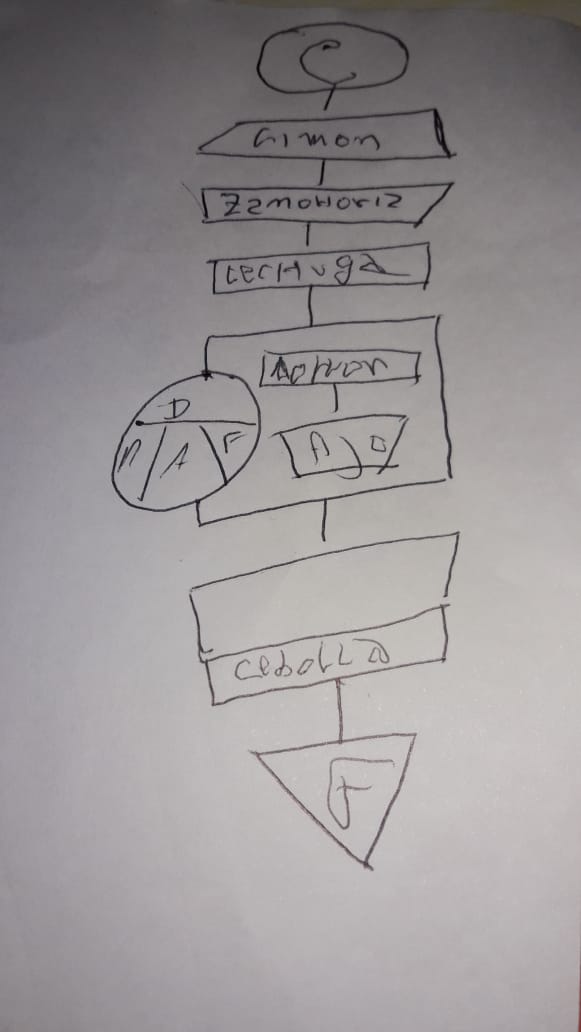 C
Limon
Zanahoria
LecHuga
D
A
F
AJO
CebolLa
F